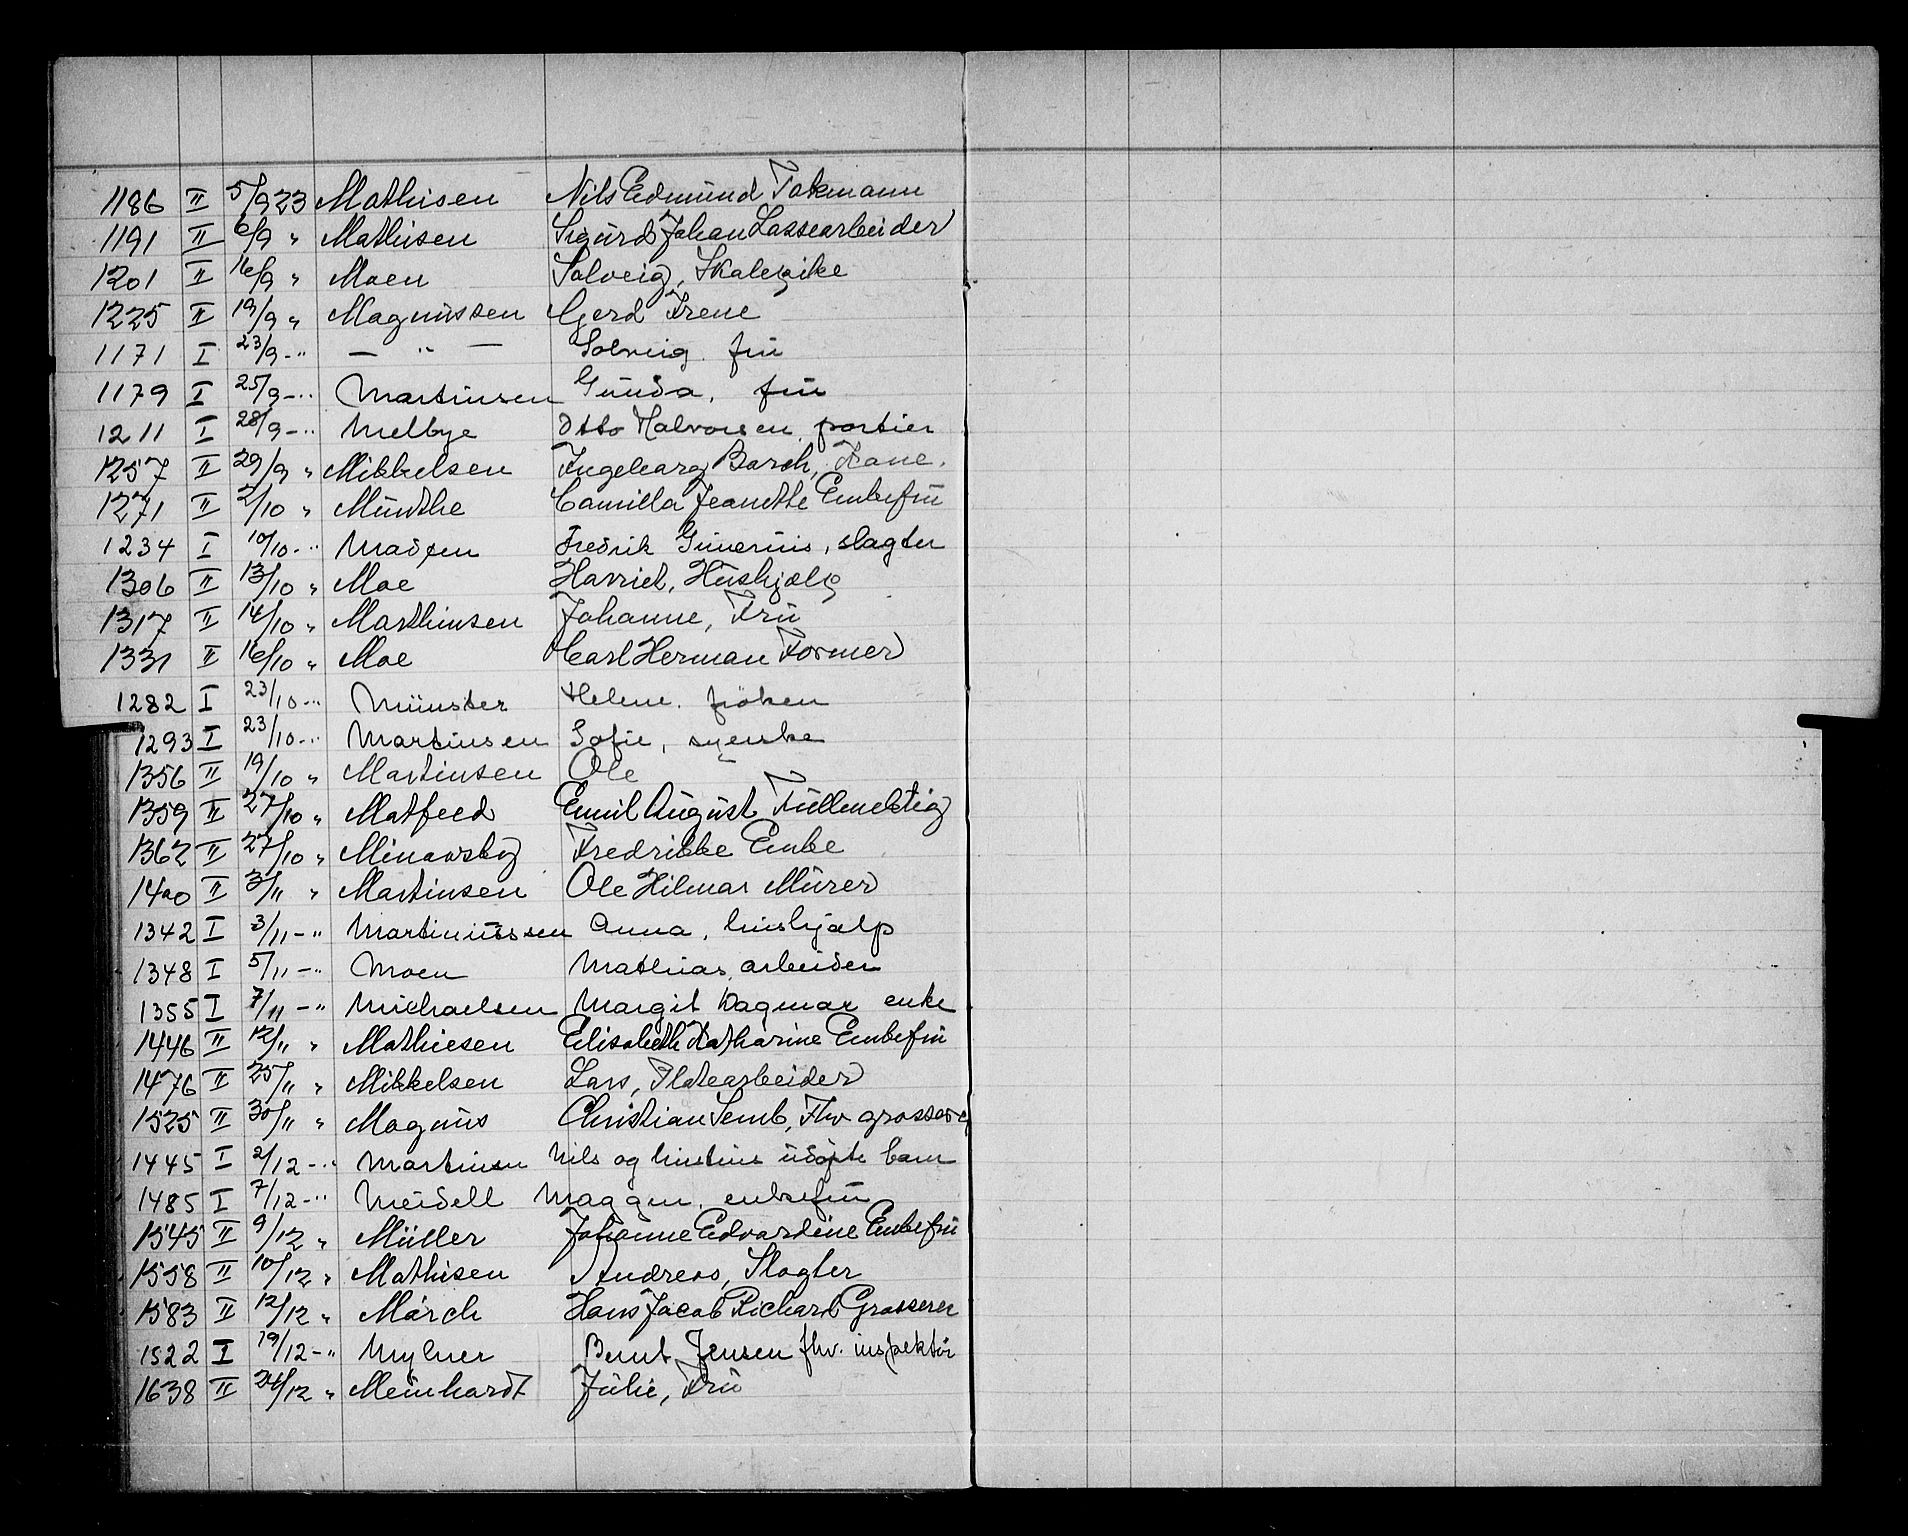 1186 II 5/9 23 Mathisen Nils Edmund Fakmann
1191 II 6/9 " Mathisen Sigurd Johan Lossearbeider
1201 II 16/9 " Moen Solveig, Skolepike
1225 II 19/9 " Magnussen Gerd Irene
1171 I 23/9 - " — " — Solveig. frü
1179 I 25/9 - " Martinsen Gunda, frü
1211 I 28/9 - " Melbye Otto Halvorsen portier
1257 II 29/9 " Mikkelsen Ingeborg Borch, Kone.
1271 II 2/10 " Münthe Camilla Jeanette Enkefrü
1234 I 10/10 - " Madsen Fredrik Gunerius, slagter
1306 II 13/10 " Moe Harriet, Hüshjælp
1317 II 14/10 " Marthinsen Johanne, Frü
1331 II 16/10 " Moe Carl Herman Former
1282 I 23/10 - " Münster Helene. frøken
1293 I 23/10 - " Martinsen Sofie, syerske
1356 II 19/10 " Martinsen Ole
1359 II 27/10 " Matfeed Emil August Füllmektig
1362 II 27/10 " Minavsky Fredrikke Enke
1400 II 3/11 " Martinsen Ole Hilmar Mürer
1342 I 3/11 - " Martiniüssen Anna, hüshjælp
1348 I 5/11 - " Moen Mathias, arbeider
1355 I 7/11 - " Michaelsen Margit Dagmar enke
1446 II 12/11 " Mathiesen Elisabeth Katharine Enkefrü
1476 II 25/11 " Mikkelsen Lars, Platearbeider
1525 II 30/11 " Magnüs Christian Semb, Fhv grosserer
1445 I 2/12 - " Martinsen Nils og hüstrüs üdøpte barn
1485 I 7/12 - " Meidell Maggen, enkefrü
1545 II 9/12 " Müller Johanne Edvardine Enkefrü
1558 II 10/12 " Mathisen Andreas, Slagter
1583 II 12/12 " Március Hans Jacob Richard Grosserer
1522 I 19/12 - " Mylner Bernt Jensen fhv. inspektør
1638 II 24/12 " Meinhardt Jülie, Frü